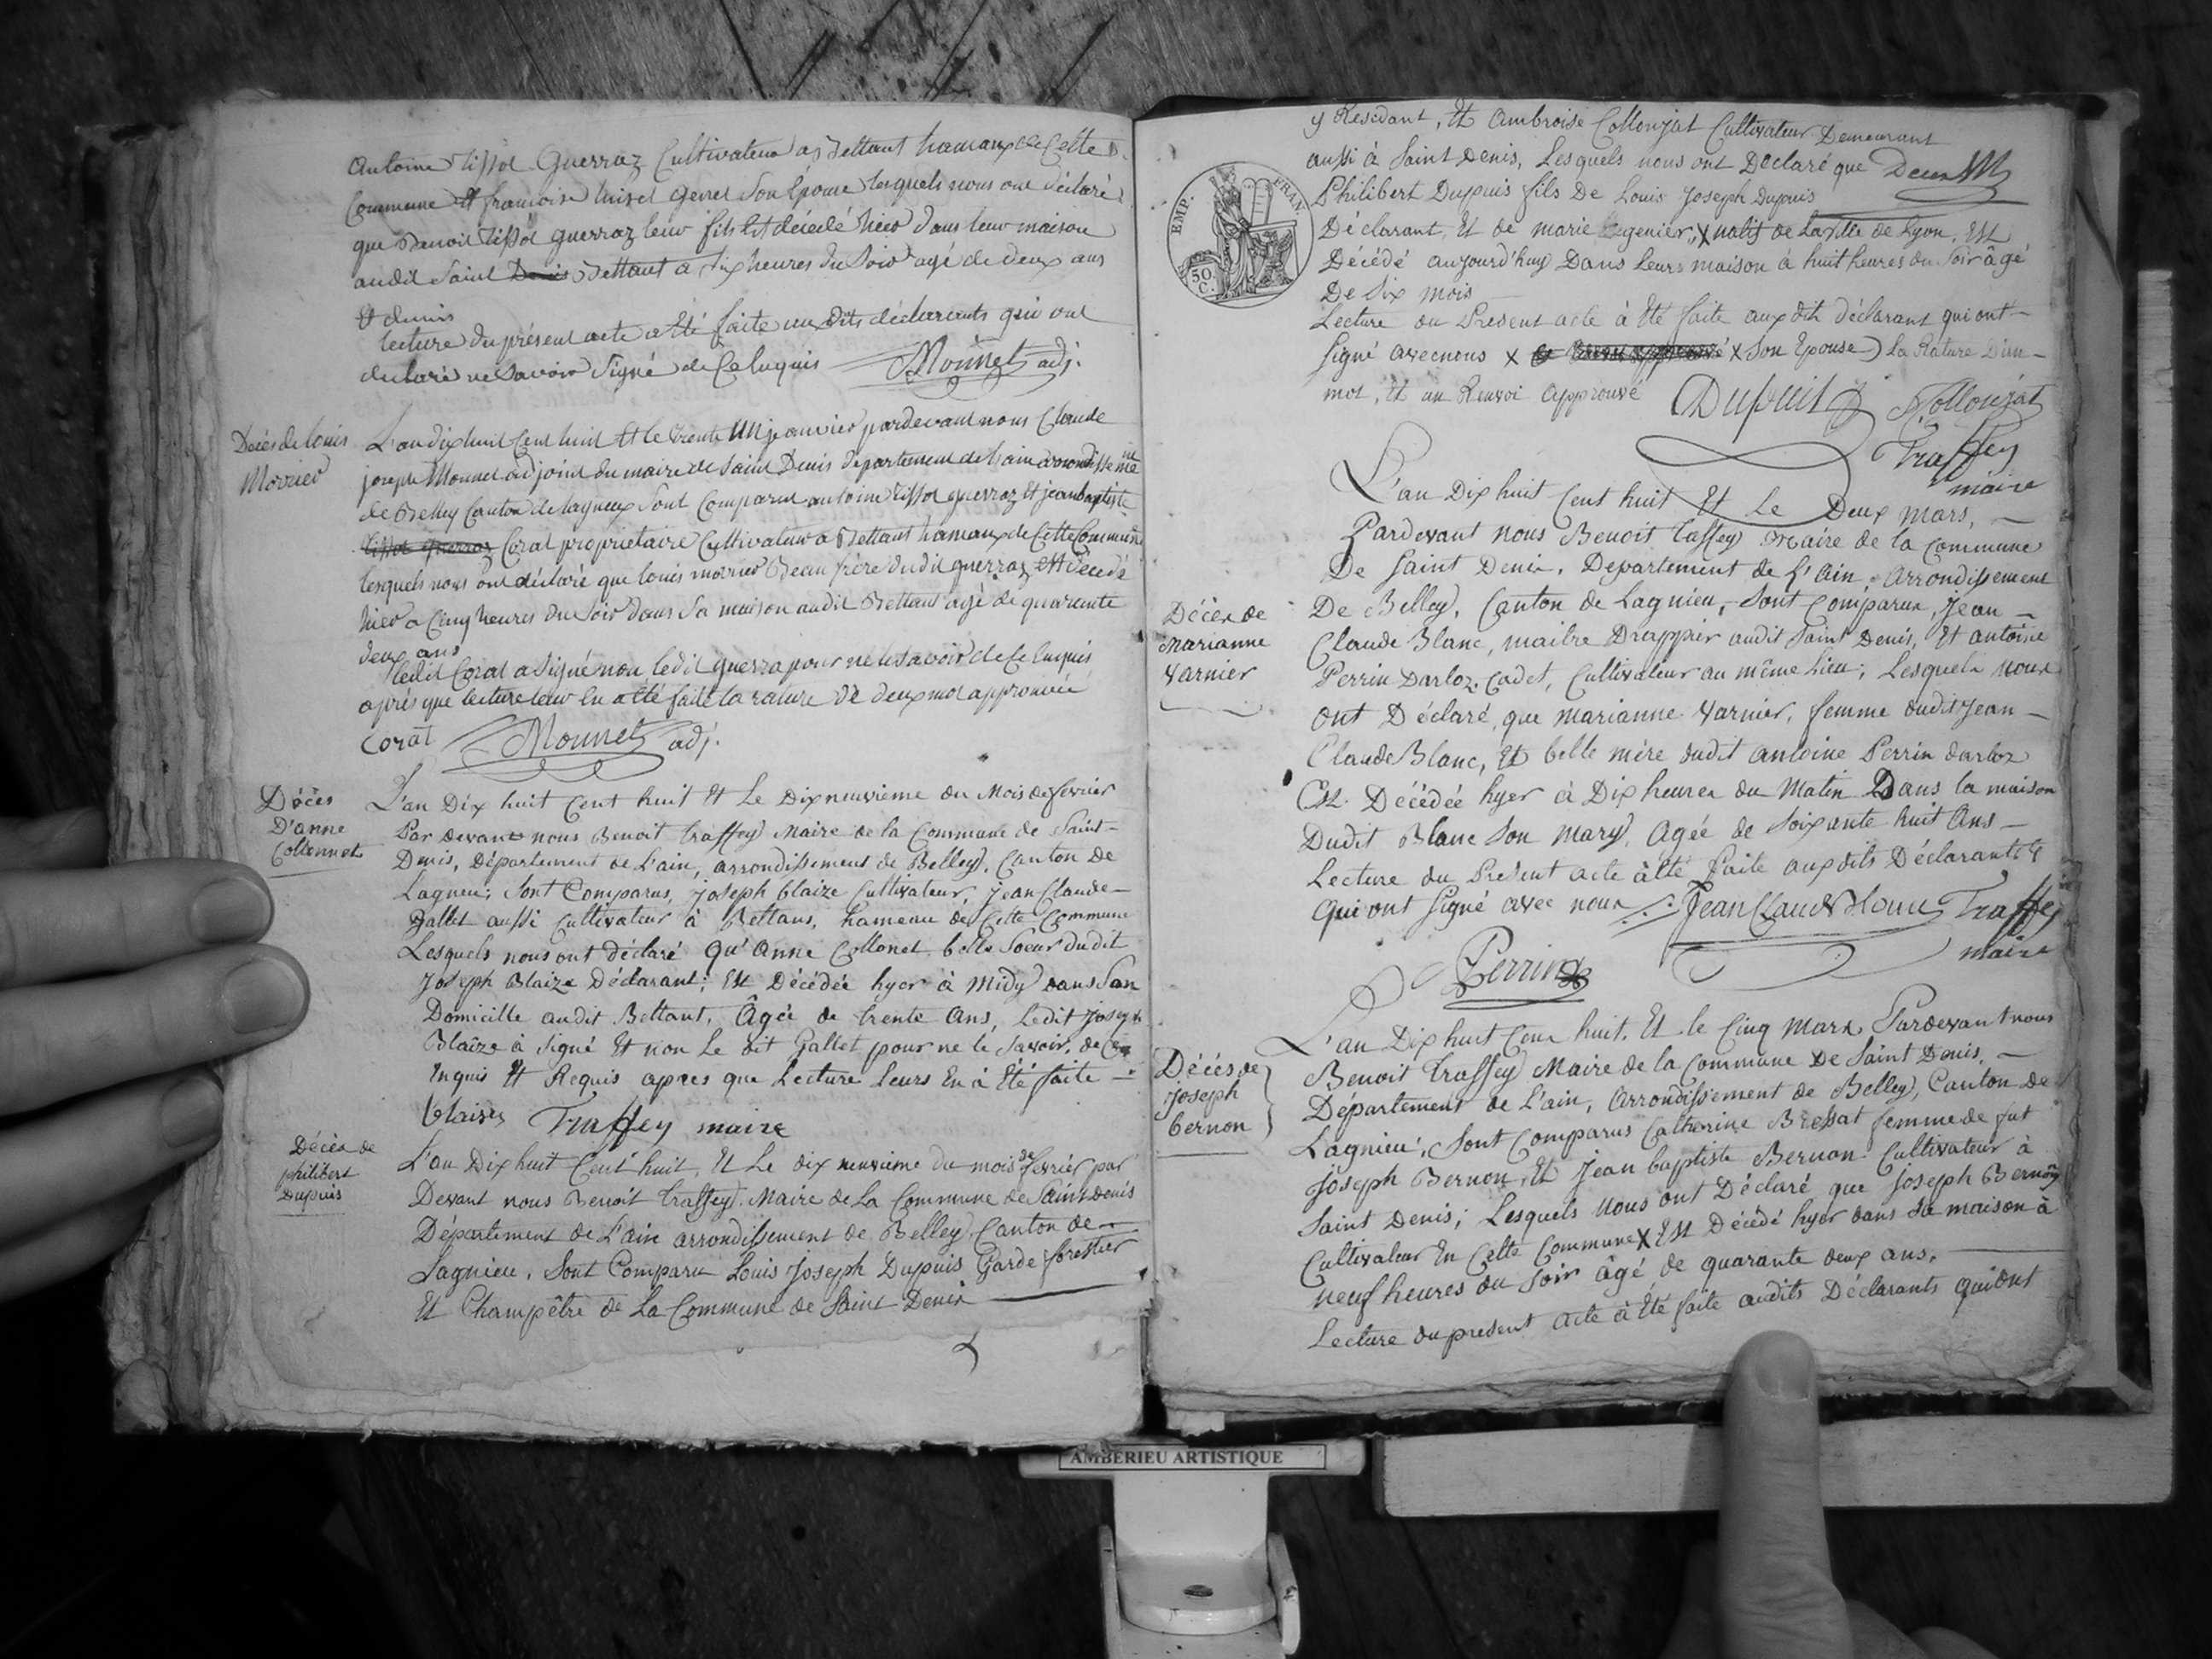 Antoine Tissot Guerraz Cultivateur a Bettant hamaux de Cette
Commune Et francoise Genet Son Epouse lesquels nous ont déclaré
que Benoit Tissot guerraz leur fils Est décédé hier dans leur maison
audit Saint Denis Bettant a Six heures du Soir agé de deux ans
Et demis
lecture du présent acte a Eté faite aux dits déclarants qui ont
declaré ne Savoir Signé de Ce Enquis Monnet adj.
Décès de louis
Morrier
L'an dix huit Cent huit Et le trente Un janvier pardevant nous Claude
joseph Monnet adjoint du maire de Saint Denis département de l'ain arrondisseme
de Belley Canton de lagnieux Sont Comparut antoine Tissot guerraz Et jean baptiste
Tissot guerraz Corat propriétaire Cultivateur a Bettant hamaux de Cette Commune
lesquels nous ont déclaré que louis morrier Beau frère dudit guerraz Est décédé
hier a Cinq heures du Soir dans Sa maison audit Bettant agé de quarente
deux ans
ledit Corat a Signé non ledit guerraz pour ne le Savoir de Ce Enquis
après que lecture leur En a été faite la rature de deux mot approuvée
Corat Monnet adj.
Décès
D'anne
Collonnet
L'an Dix huit Cent huit Et Le Dixneuvième du Mois de fevrier
Par devant nous Benoit Traffey Maire de la Commune de Saint-
Denis, Département de L'ain, arrondissement de Belley, Canton de
Lagnieu; Sont Comparus, joseph Blaize Cultivateur, jean Claude-
Gallet aussi Cultivateur à Bettans, hameau de Cette Commune
Lesquels nous ont déclaré Qu'Anne Collonet belle Soeur dudit
Joseph Blaize Déclarant; Est Décédée hyer à Midy dans Son
Domicille audit Bettant, Agée de trente Ans, Ledit joseph
Blaîze à Signé Et non Le dit Gallet pour ne le Savoir, de Ce
Enquis Et Requis apres que Lecture Leurs En à Eté faite -
blaize Traffey maire
Décès de
philibert
Dupuis
L'an Dix huit Cent huit, Et Le dix neuvième du mois de fevrier par
Devant nous Benoit Traffey, Maire de La Commune de Saint denis
Département de L'ain arrondissement de Belley, Canton de-
Lagnieu, Sont Comparu Louis Joseph Dupuis Garde forestier
Et Champêtre de La Commune de Saint Denis
EMP. FRAN.
50.
C.
y Residant, Et Ambroise Collonjat Cultivateur Demeurant
aussi à Saint Denis, Lesquels nous ont Declaré que
Philibert Dupuis fils De Louis Joseph Dupuis
Déclarant, Et de marie X natif de La Ville de Lyon, Est
Décédé aujourd'huy Dans Leurs maison à huit heures du Soir âgé
De Six mois
Lecture du Present acte à Eté faite aux dits déclarant qui ont-
Signé avec nous X X Son Epouse) La Rature D'un-
mot, Et un Renvoi Approuvé Dupuit Collonjat
Traffey
maire
Décès de
Marianne
Varnier
L'an Dix huit Cent huit Et Le Deux Mars,
Pardevant nous Benoit Traffey Maire de la Commune
De Saint Denis, Departement de L'Ain, Arrondissement
De Belley, Canton de Lagnieu, Sont Comparus, Jean-
Claude Blanc, maitre Drappier audit Saint Denis, Et antoine
Perrin Darloz, Cadet, Cultivateur au même Lieu; Lesquels nous
Ont Déclaré que Marianne Varnier, femme dudit Jean-
Claude Blanc, Et belle mère dudit Antoine Perrin darloz
Est Décédée hyer à Dix heures du Matin Dans la maison
Dudit Blanc Son Mary, Agée de Soixante huit Ans-
Lecture du Présent acte à été faite aux dits Déclarants
Qui ont Signé avec nous Jean Claude Blanc Traffey
maire
Perrin
Décès de
joseph
bernon
L'an Dix huit Cens huit, Et le Cinq Mars Pardevant nous
Benoit Traffey Maire de la Commune De Saint Denis,-
Département de L'ain, Arrondissement de Belley, Canton De
Lagnieu, Sont Comparus Catherine Bressat femme de fut
Joseph Bernon, Et Jean baptiste Bernon Cultivateur à
Saint Denis; Lesquels Nous ont Déclaré que joseph Bernon
Cultivateur En Cette Commune X Est Décédé hyer dans Sa maison à
neuf heures du Soir âgé de quarante deux ans,
Lecture du present Acte à Eté faite audits Déclarants qui ont
AMBERIEU ARTISTIQUE